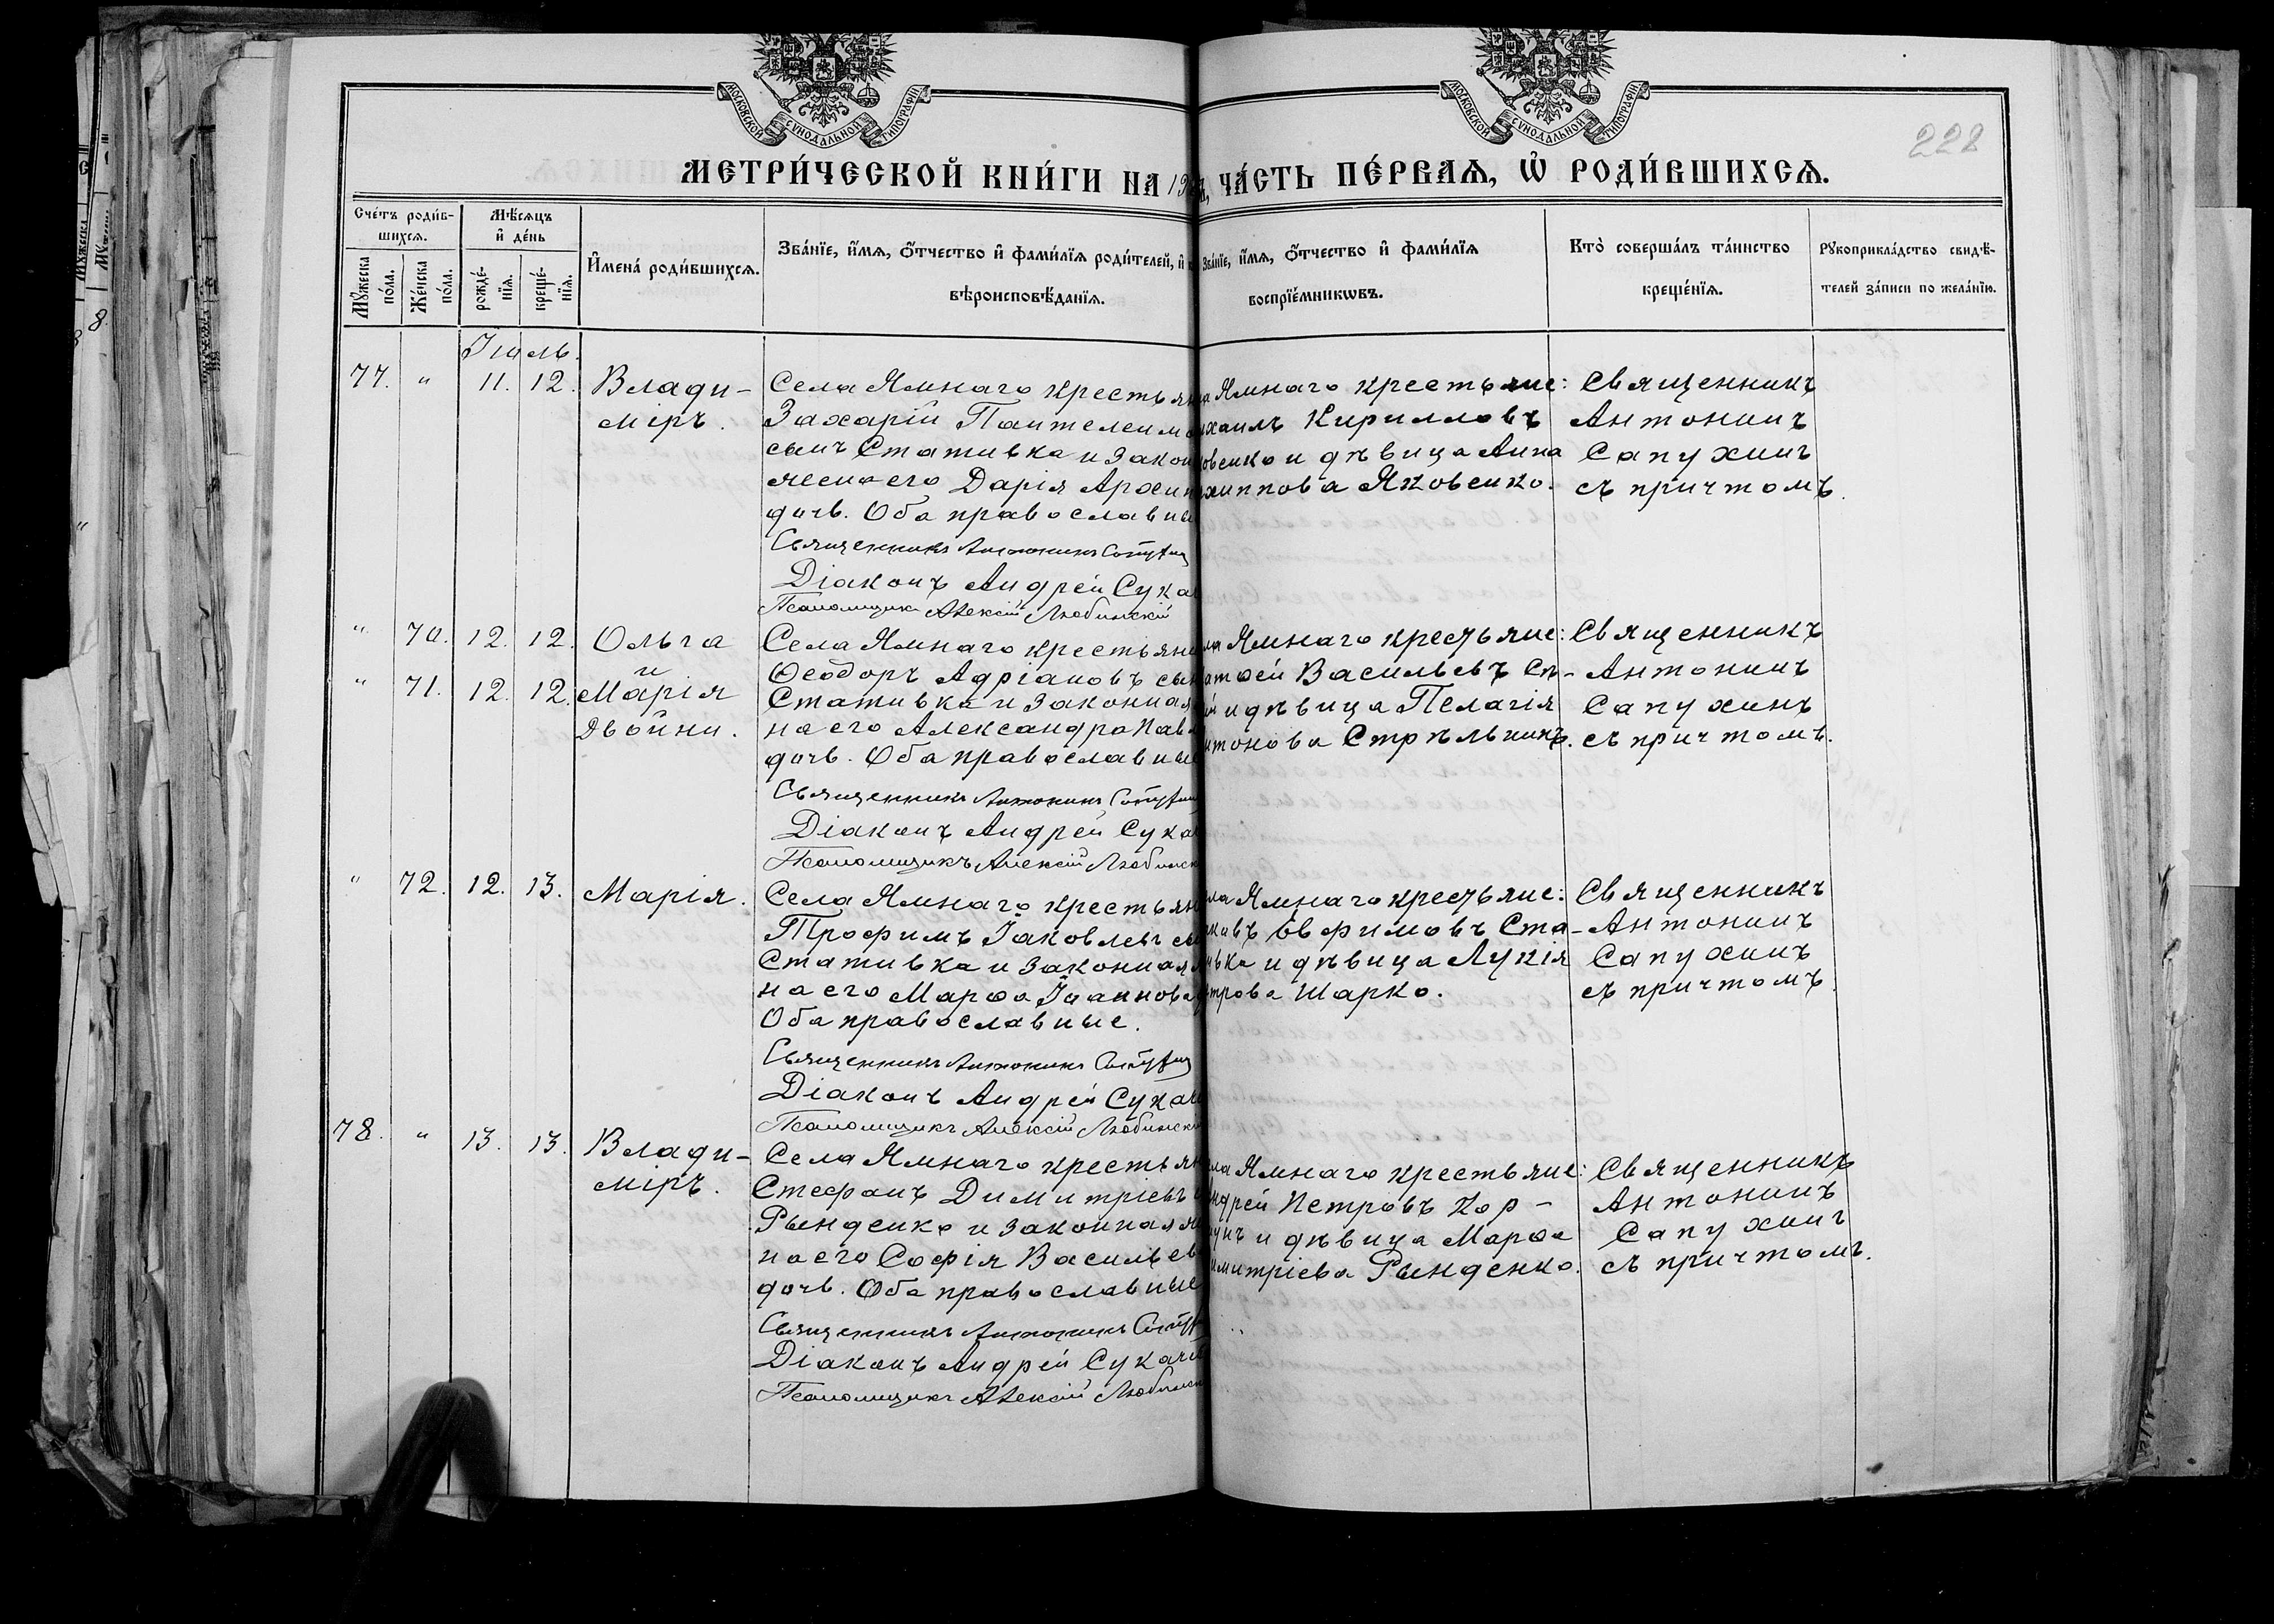 МОСКОВСКОЙ СУНОДАЛЬНОЙ ТИПОГРАФІИ
МОСКОВСКОЙ СУНОДАЛЬНОЙ ТИПОГРАФІИ
228
МЕТРИ́ЧЕСКОЙ КНИ́ГИ НА 19
ЧА́СТЬ ПЕ́РВАѦ, Ѽ РОДИ́ВШИХСѦ.
Сче́тъ роди́в-
шихсѧ.
Мѣ́сѧцъ
и҆ де́нь
Мꙋ́жеска
по́ла.
Же́нска
по́ла.
рожде́-
нїѧ.
креще́-
нїѧ.
И҆мена̀ роди́вшихсѧ.
Зва́нїе, и҆́мѧ, ѻ҆́тчество и҆ фами́лїѧ роди́телей, и҆
вѣроисповѣ́данїѧ.
Зва́нїе, и҆́мѧ, ѻ҆́тчество и҆ фами́лїѧ
воспрїе́мникѡвъ.
Кто̀ соверша́лъ та́инство
креще́нїѧ.
Рꙋкоприкла́дство свидѣ́-
телей за́писи по жела́нїю.
Іюль.
77. " 11. 12. Влади-
міръ.
Села Ямнаго крестьян
Захарій Пантелеимо
сынъ Стативка и закон
жена его Дарія Архип
дочь. Оба православны
Священникъ Антонинъ Сапухин
Діаконъ Андрей Сука
Псаломщикъ Алексій Любинскій
Ямнаго крестьяне:
хаилъ Кирилловъ
овенко и дѣвица Анна
хиппова Яковенко.
Священникъ
Антонинъ
Сапухинъ
съ причтомъ.
" 70. 12. 12. Ольга
и
" 71. 12. 12. Марія
двойни.
Села Ямнаго крестьяни
Ѳеодоръ Адріановъ сын
Стативка и законная
на его Александра Павл
дочь. Оба православные
Священникъ Антонинъ Сапухин
Діаконъ Андрей Сука
Псаломщикъ Алексій Любинск
ла Ямнаго крестьяне:
атѳей Васильевъ Сѣ-
й и дѣвица Пелагія
тонова Стрѣльникъ.
Священникъ
Антонинъ
Сапухинъ
съ причтомъ.
" 72. 12. 13. Марія.
Села Ямнаго крестьян
Трофимъ Іаковлевъ сы
Стативка и законная
на его Марѳа Іоаннова
Оба православные.
Священникъ Антонинъ Сапухин
Діаконъ Андрей Сукач
Псаломщикъ Алексій Любинск
ла Ямнаго крестьяне:
ковъ Евфимовъ Ста-
ивка и дѣвица Лукія
трова Шарко.
Священникъ
Антонинъ
Сапухинъ
съ причтомъ.
78. " 13. 13. Влади-
міръ.
Села Ямнаго крестьян
Стефанъ Димитріевъ
Рынденко и законная ж
на его Софія Васильев
дочь. Оба православные
Священникъ Антонинъ Сапух
Діаконъ Андрей Сукаче
Псаломщикъ Алексій Любинск
ла Ямнаго крестьяне:
ндрей Петровъ Кор-
унъ и дѣвица Марѳа
имитріева Рынденко.
Священникъ
Антонинъ
Сапухинъ
съ причтомъ.